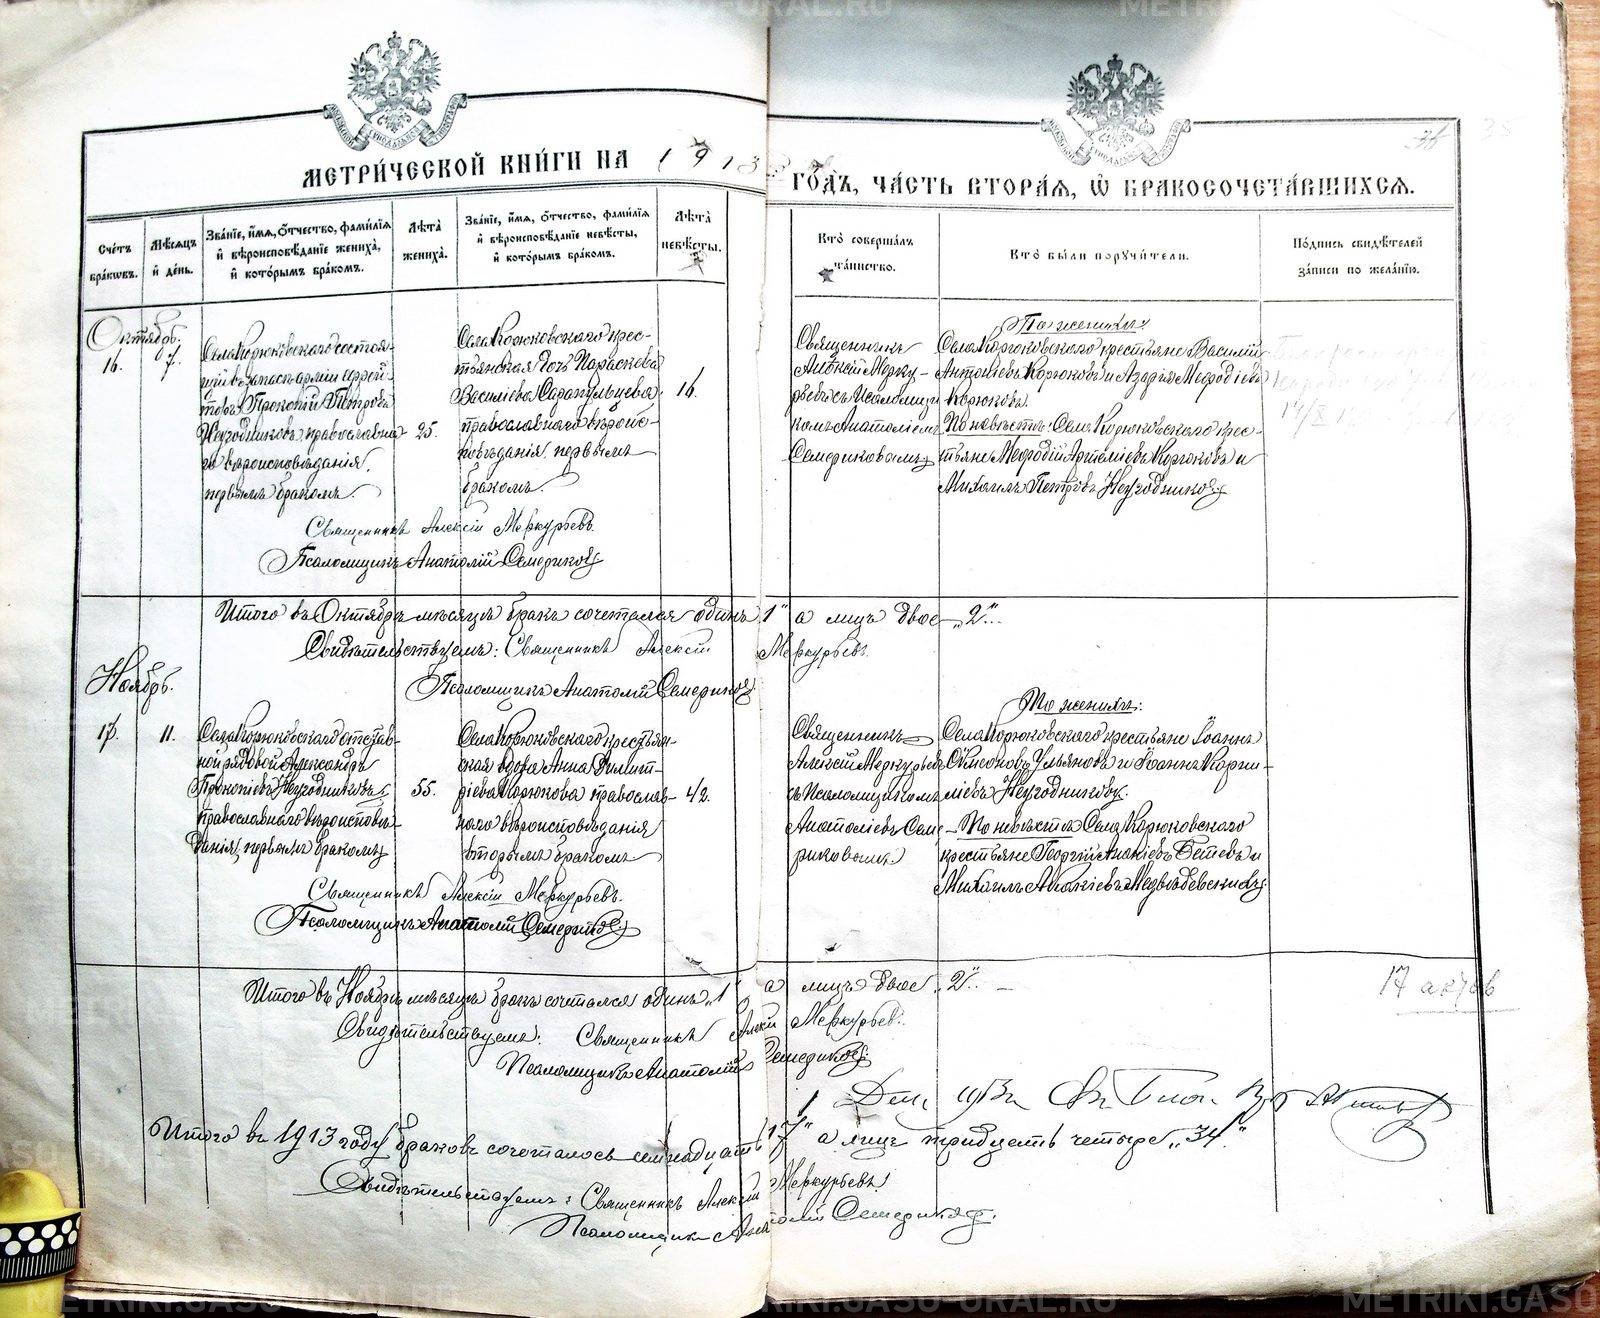 МЕТРИ́ЧЕСКОЙ КНИ́ГИ НА 1913 ГО́ДЪ, ЧА́СТЬ ВТОРА́Я, Ѽ БРАКОСОЧЕТА́ВШИХСЯ.
Сче́тъ бра́ковъ.
Мѣ́сяцъ и де́нь.
Зва́нїе, и́мя, ѻ́тчество, фами́лїя и҆ вѣроисповѣ́данїе жениха̀, и҆ кото́рымъ бра́комъ.
Лѣ́та жениха̀.
Зва́нїе, и́мя, ѻ́тчество, фами́лїя и҆ вѣроисповѣ́данїе невѣ́сты, и҆ кото́рымъ бра́комъ.
Лѣ́та невѣ́сты.
Кто̀ соверша́лъ та́инство.
Кто̀ бы́ли поручи́тели.
По́дпись свидѣ́телей за́писи по жела́нїю.
Октябрь.
16.
7.
Села Корюковскаго состоя-
щій въ запасѣ арміи ефрей-
торъ Прокопій Петровъ
Неугодниковъ, православна-
го вѣроисповѣданія,
первымъ бракомъ.
25.
Села Корюковскаго крес-
тьянская дочь Параскева
Василіева Сарапульцева,
православнаго вѣроис-
повѣданія, первымъ
бракомъ.
16.
Священникъ
Алексій Мерку-
рьевъ съ Псаломщи
комъ Анатоліемъ
Семериковымъ
По женихѣ:
Села Корюковскаго крестьяне Василій
Антоніевъ Корюковъ и Азарія Меѳодіевъ
Корюковъ.
По невѣстѣ: Села Корюковскаго крес-
тьяне Меѳодій Артеміевъ Корюковъ и
Михаилъ Петровъ Неугодниковъ.
Священникъ Алексій Меркурьевъ.
Псаломщикъ Анатолій Семериковъ
Итого въ Октябрѣ мѣсяцѣ бракъ сочетался одинъ „1“ а лицъ двое „2“.
Свидѣтельствуемъ: Священникъ Алексій Меркурьевъ.
Псаломщикъ Анатолій Семериковъ
Ноябрь.
17.
11.
Села Корюковскаго отстав-
ной рядовой Александръ
Прокопіевъ Неугодниковъ,
православнаго вѣроисповѣ-
данія, первымъ бракомъ
55.
Села Корюковскаго крестьян-
ская вдова Анна Димит-
ріева Корюкова православ-
наго вѣроисповѣданія
вторымъ бракомъ
42.
Священникъ
Алексій Меркурьевъ
съ Псаломщикомъ
Анатоліемъ Семе-
риковымъ.
По женихѣ:
Села Корюковскаго крестьяне Іоаннъ
Симеоновъ Ульяновъ и Іоаннъ Корни-
ліевъ Неугодниковъ.
По невѣстѣ Села Корюковскаго
крестьяне Георгій Ананіевъ Бетевъ и
Михаилъ Медвѣдевскихъ.
Священникъ Алексій Меркурьевъ.
Псаломщикъ Анатолій Семериковъ
Итого въ Ноябрѣ мѣсяцѣ бракъ сочетался одинъ „1“ а лицъ двое „2“.
17 актов
Свидѣтельствуемъ: Священникъ Алексій Меркурьевъ.
Псаломщикъ Анатолій Семериковъ
Итого въ 1913 году браковъ сочеталось семнадцать „17“ а лицъ тридцать четыре „34.“
Свидѣтельствуемъ: Священникъ Алексій Меркурьевъ.
Псаломщикъ Анатолій Семериковъ.
METRIKI.GASO-URAL.RU